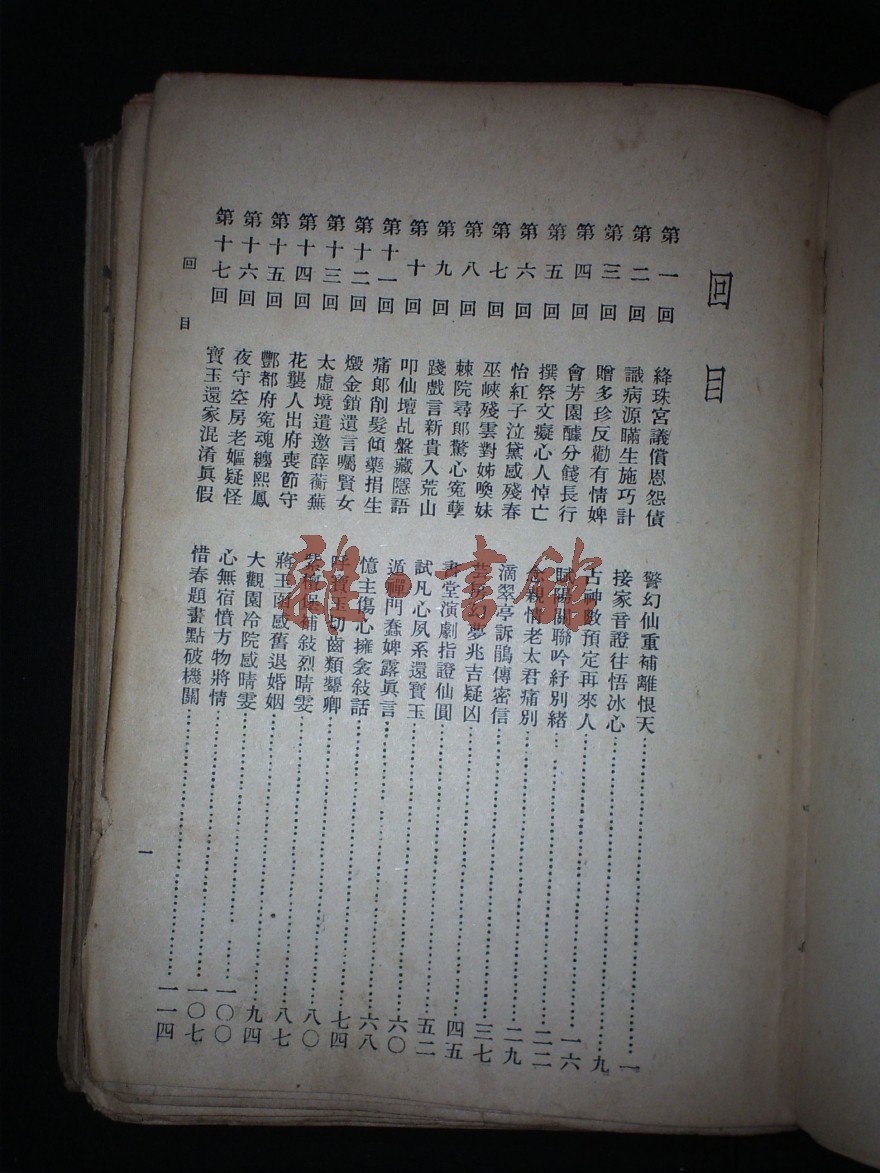 回目
第一回 絳珠宮議償恩怨債 警幻仙重補離恨天 一
第二回 識病源瞞生施巧計 接家音證往悟冰心 九
第三回 贈多珍反勸有情婢 占神數預定再來人 一六
第四回 會芳園醵分餞長行 賦陽關聯吟紓別緒 二二
第五回 撰祭文癡心人悼亡 念親情老太君痛別 二九
第六回 怡紅子泣黛感殘春 滴翠亭訴鵑傳密信 三七
第七回 巫峽殘雲對姊喚妹 幻夢兆吉疑凶 四五
第八回 棘院尋郎驚心冤孽 書堂演劇指證仙圓 五二
第九回 踐戲言新貴入荒山 試凡心夙系還寶玉 六〇
第十回 叩仙壇乩盤藏隱語 遁禪門蠢婢露眞言 六八
第十一回 痛郎削髮傾藥捐生 憶主傷心擁衾敍話 七四
第十二回 燬金鎖遺言囑賢女 呼寶玉切齒類顰卿 八〇
第十三回 太虛境遣邀薛蘅蕪 紫檀保補敍烈晴雯 八七
第十四回 花襲人出府喪節守 蔣玉函感舊退婚姻 九四
第十五回 酆都府冤魂纏熙鳳 大觀園冷院感晴雯 一〇〇
第十六回 夜守空房老嫗疑怪 心無宿憤方物將情 一〇七
第十七回 寶玉還家混淆眞假 惜春題畫點破機關 一一四
回目
一
雜·書館